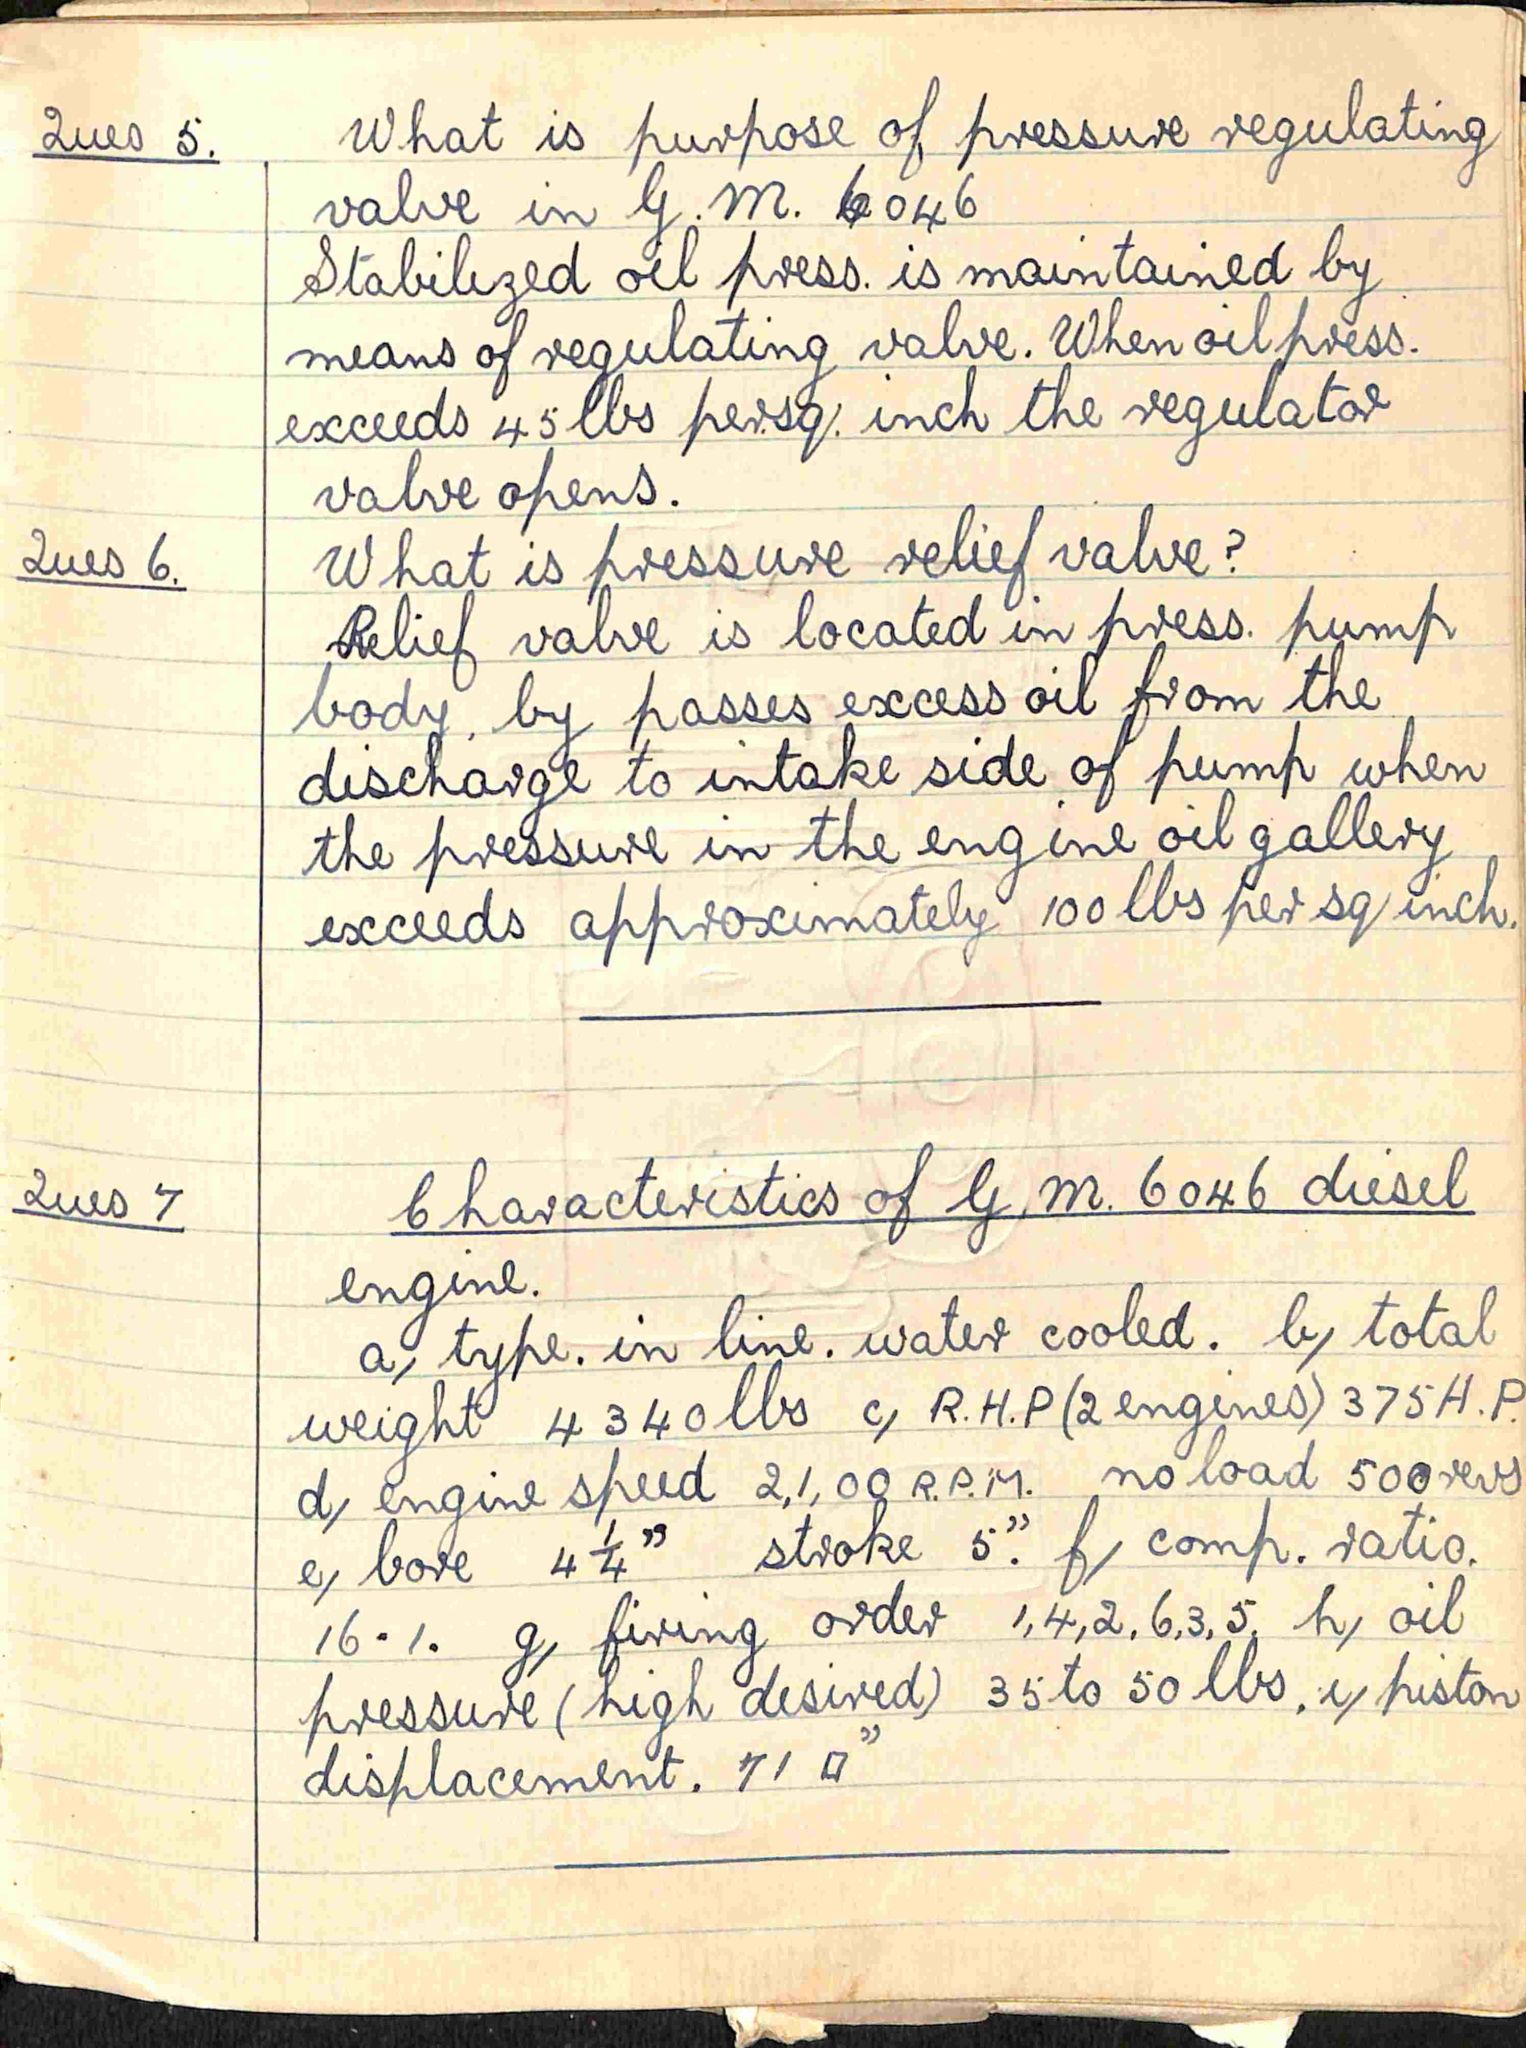 Ques 5. What is purpose of pressure regulating
valve in G.M. 6046
Stabilized oil press. is maintained by
means of regulating valve. When oil press.
exceeds 45 lbs per.sq. inch the regulator
valve opens.
Ques 6. What is pressure relief valve?
Relief valve is located in press. pump
body. by passes excess oil from the
discharge to intake side of pump when
the pressure in the engine oil gallery
exceeds approximately 100 lbs per sq inch.
Ques 7 Characteristics of G.M. 6046 diesel
engine.
a, type. in line. water cooled. b, total
weight 4340 lbs c, R.H.P (2 engines) 375 H.P.
d, engine speed 2,1,00 R.P.M. no load 500 revs
e, bore 4 1/4" stroke 5". f, comp. ratio.
16.1. g, firing order 1,4,2,6,3,5. h, oil
pressure (high desired) 35 to 50 lbs. i, piston
displacement. 71 □"